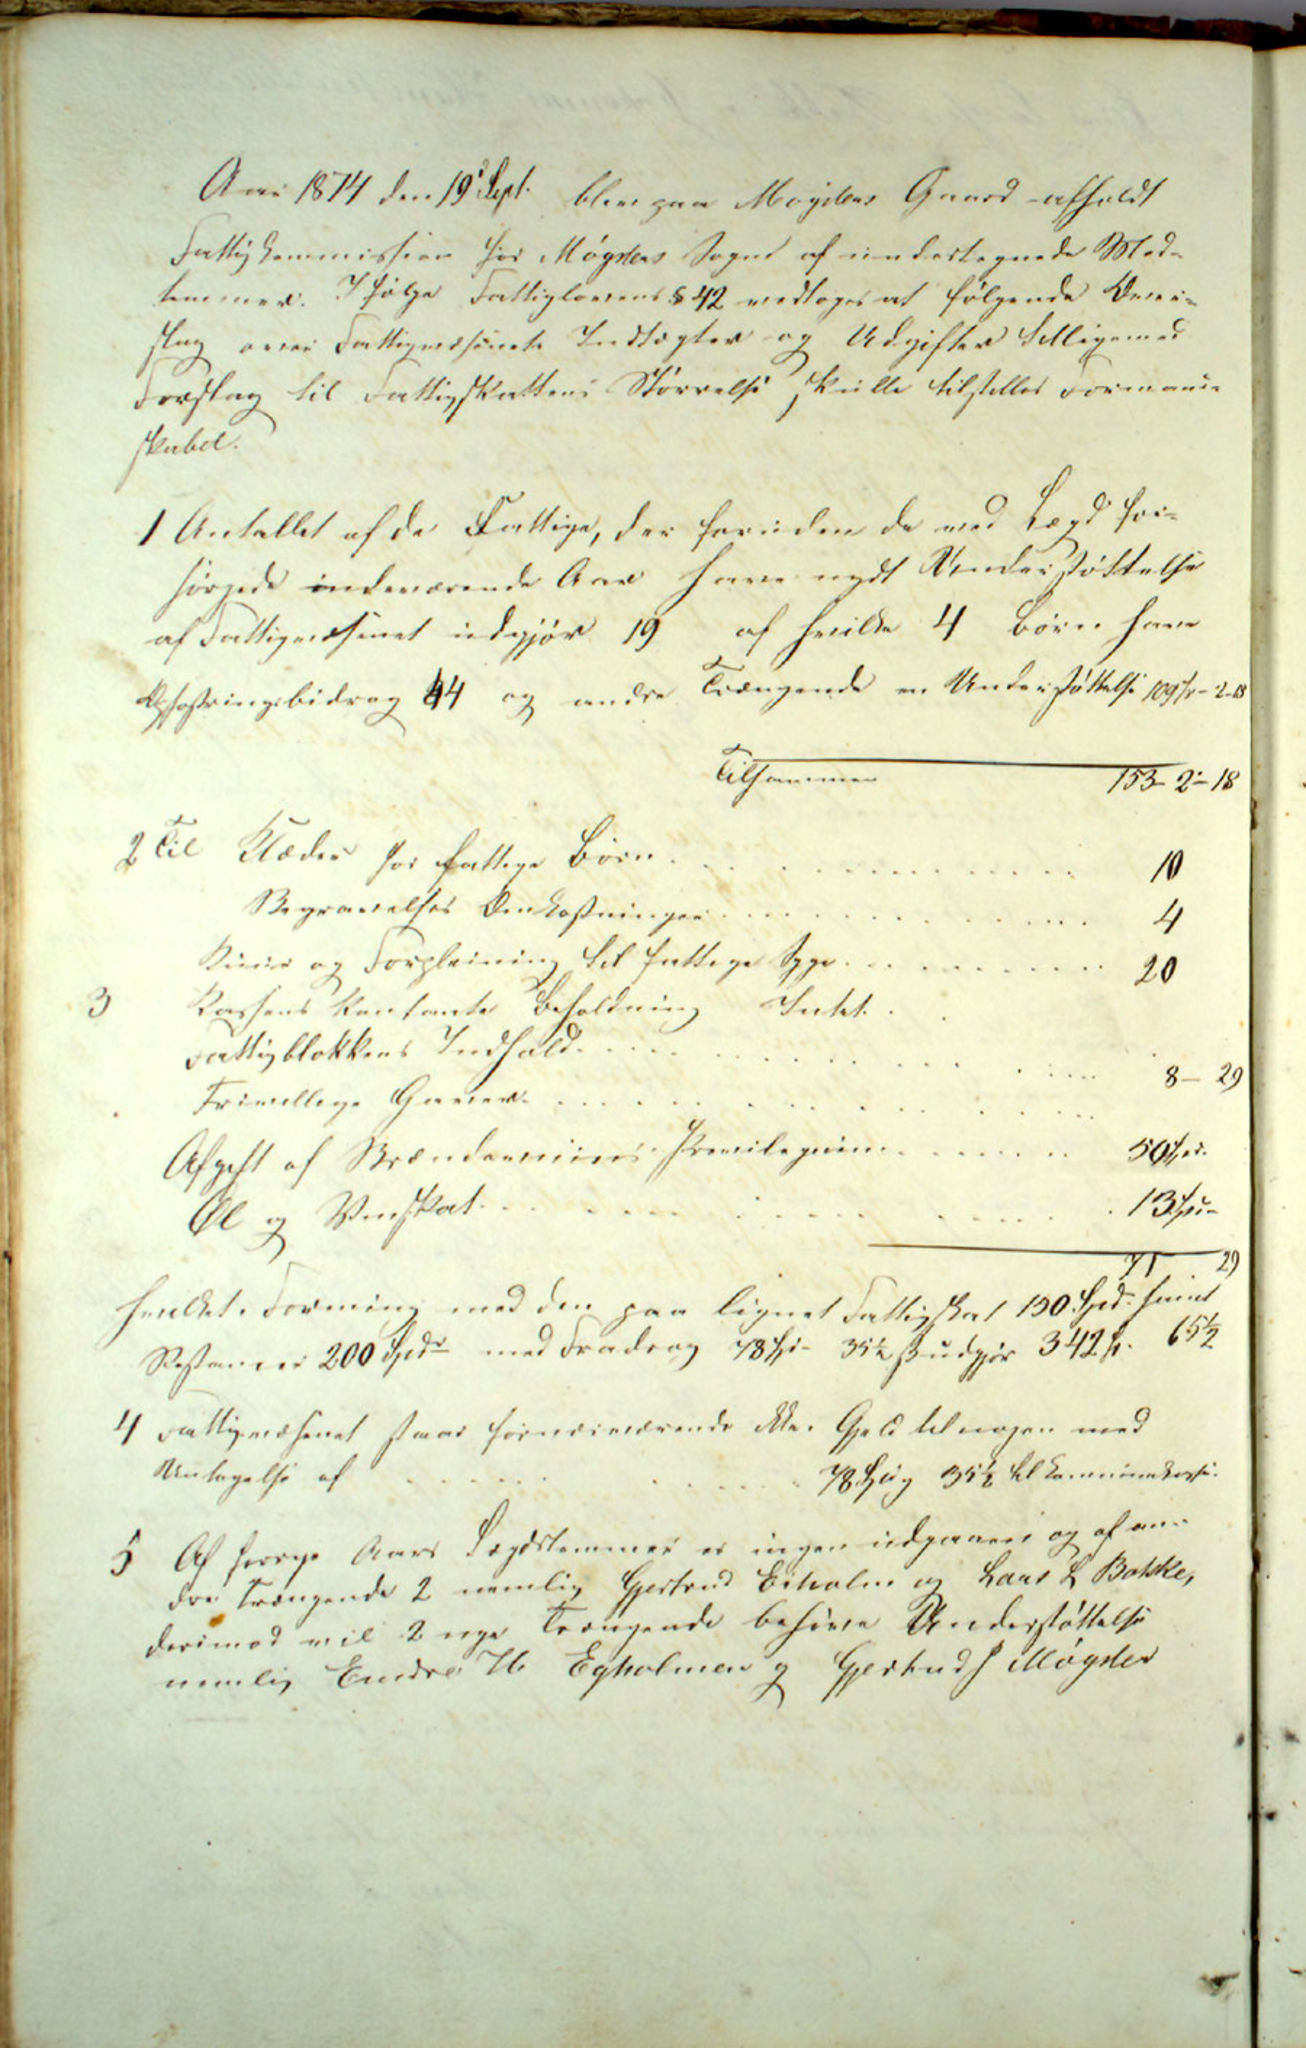 Aar 1874 den 19de Sept. blev paa Møgsters Gaard afholdt
Fattigkommission for Møgsters Sogn af undertegnede Med-
lemmer. I følge Fattiglovens § 42 vedtoges at følgende Over-
slag over Fattigvæsenets Indtægter og Udgifter tilligemed
Forslag til Fattigskattens Størrelse skulle tilstilles Formand-
skabet.
1 Antallet af de Fattige, der foruden de ved Lægd for-
sørgede indeværende Aar have nydt Understøttelse
af Fattigvæsenet udgjør 19 af hvilke 4 Børn have
Opfostringsbidrag 44 og andre Trængende en Understøttelse 109 Sp - 2 - 18
Tilsammen 153 - 2 - 18
2 Til Klæder for fattige Børn 10
Begravelses Omkostninger 4
Kuur og Forpleining til fattige Syge 20
3 Kassens kontante Beholdning Intet
Fattigblokkens Indhold 8 - 29
Frivillige Gaver
Afgift af Brændeviins Privilegium 50 Spd.
Øl og Vinskat 13 Spd.
71 29
hvilket Forening med den paa lignet Fattigskat 150 Spd. samt
Restancer 200 Spdr med Fradrag 78 Spd 35½ ß udgjør 342 Sp. 65½
4 Fattigvæsenet staar for nærværende ikke Gjeld til nogen med
Untagelse af 78 Spd 35½ til Kommunekassen.
5 Af forrige Aars Lægdslemmer er ingen udgaaen og af an-
dre Trængende 2 nemlig Gjertrud Eiholm og Lars L Botske,
derimod vil 2 nye Trængende behøve Understøttelse
nemlig Endre H. Egholmen og Gjertrud J Møgster